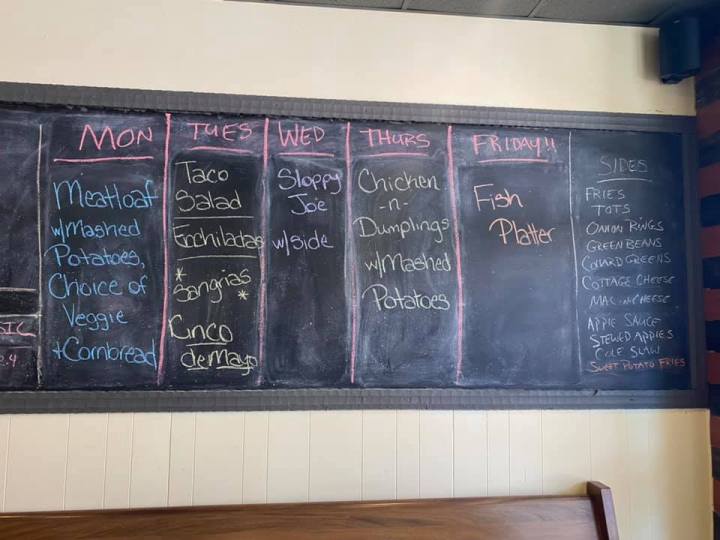 SIC
2.4
MON
Meatloaf
w/Mashed
Potatoes,
Choice of
Veggie
+Cornbread
TUES
Taco
Salad
Enchiladas
*
Sangrias
*
Cinco
de Mayo
WED
Sloppy
Joe
w/side
THURS
Chicken
-n-
Dumplings
w/Mashed
Potatoes
FRIDAY!!
Fish
Platter
SIDES
FRIES
TOTS
ONION RINGS
GREEN BEANS
COLLARD GREENS
COTTAGE CHEESE
MAC-n-CHEESE
APPLE SAUCE
STEWED APPLES
COLE SLAW
SWEET POTATO FRIES